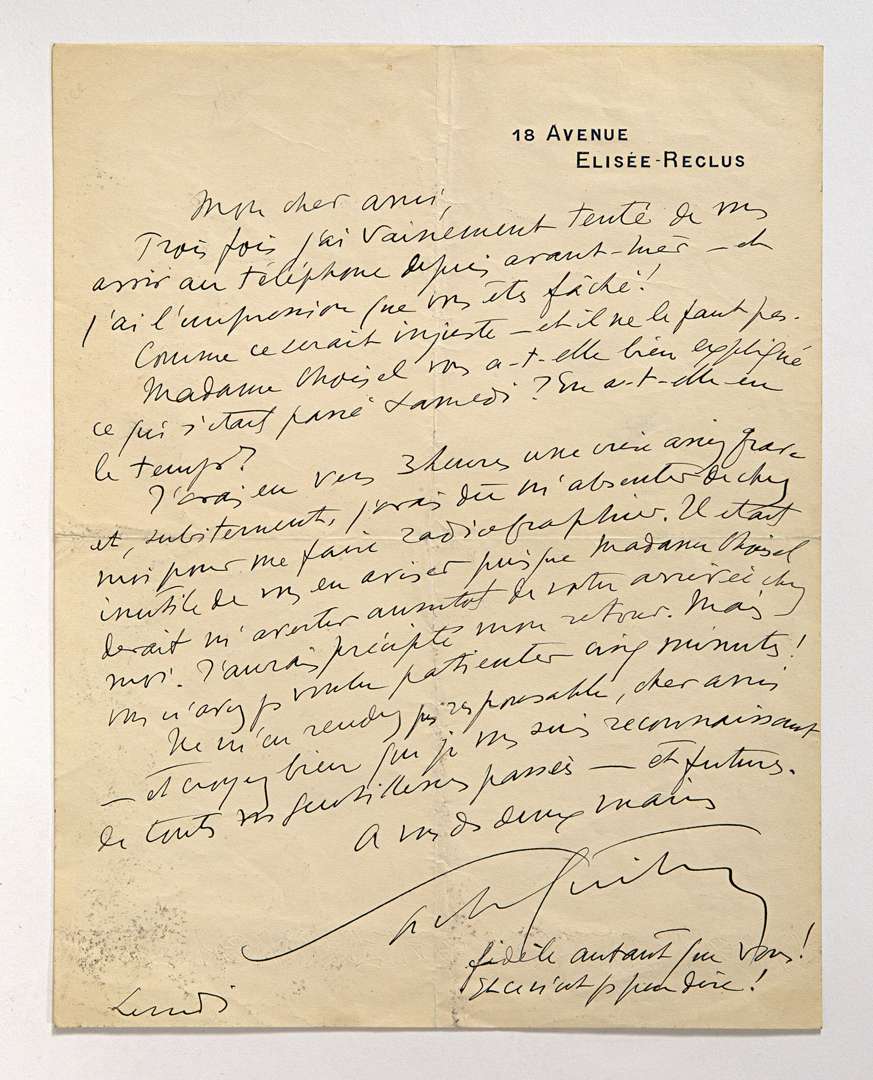 18 AVENUE
ELISÉE-RECLUS
Mon cher ami,
Trois fois j'ai vainement tenté de vous
avoir au téléphone depuis avant-hier – et
j'ai l'impression que vous êtes fâché!
Comme ce serait injuste – et il ne le faut pas.
Madame Choisel vous a-t-elle bien expliqué
ce qui s'était passé Samedi? En a-t-elle eu
le temps?
J'avais eu vers 3 heures une crise assez grave
et, subitement, j'avais dû m'absenter de chez
moi pour me faire radiographier. Il était
inutile de vous en aviser puisque Madame Choisel
devait m'avertir aussitôt de votre arrivée chez
moi. J'aurais précipité mon retour. Mais
vous n'avez ps voulu patienter cinq minutes!
Ne m'en rendez pas responsable, cher ami
– et croyez bien que je vous suis reconnaissant
de toutes vos gentillesses passées – et futures.
A vous des deux mains
Sacha Guitry
fidèle autant que vous!
Et ce n'est ps peu dire!
Lundi